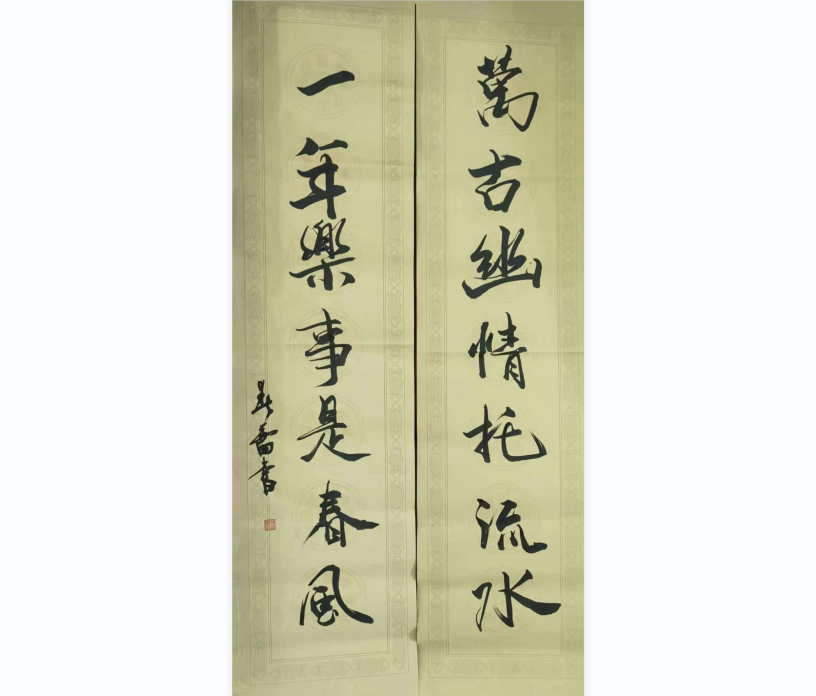 萬古幽情托流水
一年樂事是春風
書